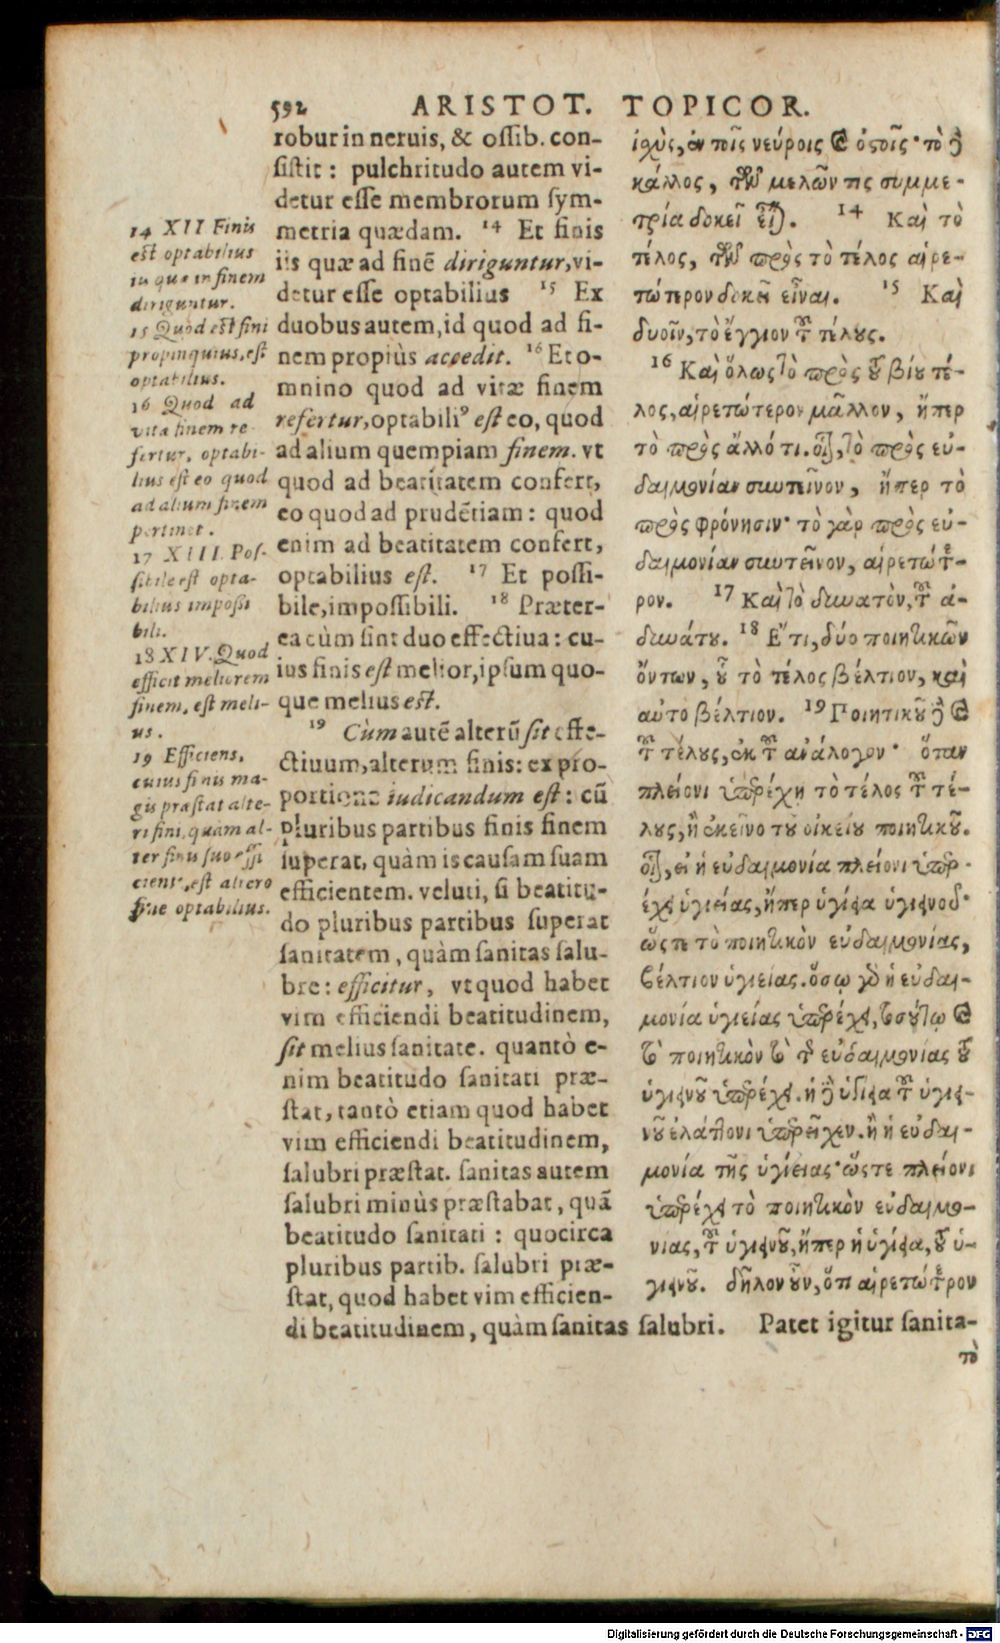 592 ARISTOT. TOPICOR.
14 XII Finis
est optabilius
iis quæ in finem
diriguntur.
15 Quod est fini
propinquius, est
optabilius.
16 Quod ad
vitæ finem re-
fertur, optabi-
lius est eo quod
ad alium finem
pertinet.
17 XIII. Pos-
sibile est opta-
bilius impossi
bili.
18 XIV. Quod
efficit meliorem
finem, est meli-
us.
19 Efficiens,
cuius finis ma-
gis præstat alte-
ri fini, quàm al-
ter finis suo effi
cienti, est altero
fine optabilius.
robur in neruis, & ossib. con-
sistit: pulchritudo autem vi-
detur esse membrorum sym-
metria quædam. 14 Et finis
iis quæ ad finē diriguntur, vi-
detur esse optabilius 15 Ex
duobus autem, id quod ad fi-
nem propiùs accedit. 16 Et o-
mnino quod ad vitæ finem
refertur, optabiliꝰ est eo, quod
ad alium quempiam finem. vt
quod ad beatitatem confert,
eo quod ad prudētiam: quod
enim ad beatitatem confert,
optabilius est. 17 Et possi-
bile, impossibili. 18 Præter-
ea cùm sint duo effectiua: cu-
ius finis est melior, ipsum quo-
que melius est.
19 Cùm autē alterū sit effe-
ctiuum, alterum finis: ex pro-
portione iudicandum est: cū
pluribus partibus finis finem
superat, quàm is causam suam
efficientem. veluti, si beatitu-
do pluribus partibus superat
sanitatem, quàm sanitas salu-
bre: efficitur, vt quod habet
vim efficiendi beatitudinem,
sit melius sanitate. quantò e-
nim beatitudo sanitati præ-
stat, tantò etiam quod habet
vim efficiendi beatitudinem,
salubri præstat. sanitas autem
salubri minùs præstabat, quā
beatitudo sanitati: quocirca
pluribus partib. salubri præ-
stat, quod habet vim efficien-
di beatitudinem, quàm sanitas salubri. Patet igitur sanita-
ἰσχὺς, ἐν τοῖς νεύροις καὶ ὀστοῖς· τὸ δὲ
κάλλος, τῶν μελῶν τις συμμε-
τρία δοκεῖ εἶναι. 14 Καὶ τὸ
τέλος, τῶν πρὸς τὸ τέλος αἱρε-
τώτερον δοκεῖ εἶναι. 15 Καὶ
δυοῖν, τὸ ἔγγιον τοῦ τέλους.
16 Καὶ ὅλως τὸ πρὸς τοῦ βίου τέ-
λος, αἱρετώτερον μᾶλλον, ἤπερ
τὸ πρὸς ἄλλό τι. οἷον, τὸ πρὸς εὐ-
δαιμονίαν συντεῖνον, ἤπερ τὸ
πρὸς φρόνησιν· τὸ γὰρ πρὸς εὐ-
δαιμονίαν συντεῖνον, αἱρετώτε-
ρον. 17 Καὶ τὸ δυνατὸν, τοῦ ἀ-
δυνάτου. 18 Ἔτι, δύο ποιητικῶν
ὄντων, οὗ τὸ τέλος βέλτιον, καὶ
αὐτο βέλτιον. 19 Ποιητικοῦ δὲ καὶ
τοῦ τέλους, ἐκ τοῦ ἀνάλογον· ὅταν
πλείονι ὑπερέχῃ τὸ τέλος τοῦ τέ-
λους, ἢ ἐκεῖνο τοῦ οἰκείου ποιητικοῦ.
οἷον, εἰ ἡ εὐδαιμονία πλείονι ὑπερ-
έχει ὑγιείας, ἤπερ ὑγίεια ὑγιεινοῦ·
ὥστε τὸ ποιητικὸν εὐδαιμονίας,
βέλτιον ὑγιείας. ὅσῳ γὰρ ἡ εὐδαι-
μονία ὑγιείας ὑπερέχει, τοσούτῳ καὶ
τὸ ποιητικὸν τὸ τῆς εὐδαιμονίας τοῦ
ὑγιεινοῦ ὑπερέχει. ἡ δὲ ὑγίεια τοῦ ὑγιει-
νοῦ ἐλάττονι ὑπερεῖχεν. ἢ ἡ εὐδαι-
μονία τῆς ὑγιείας· ὥστε πλείονι
ὑπερέχει τὸ ποιητικὸν εὐδαιμο-
νίας, τοῦ ὑγιεινοῦ, ἤπερ ἡ ὑγίεια, τοῦ ὑ-
γιεινοῦ. δῆλον οὖν, ὅτι αἱρετώτερον
τὸ
Digitalisierung gefördert durch die Deutsche Forschungsgemeinschaft - DFG